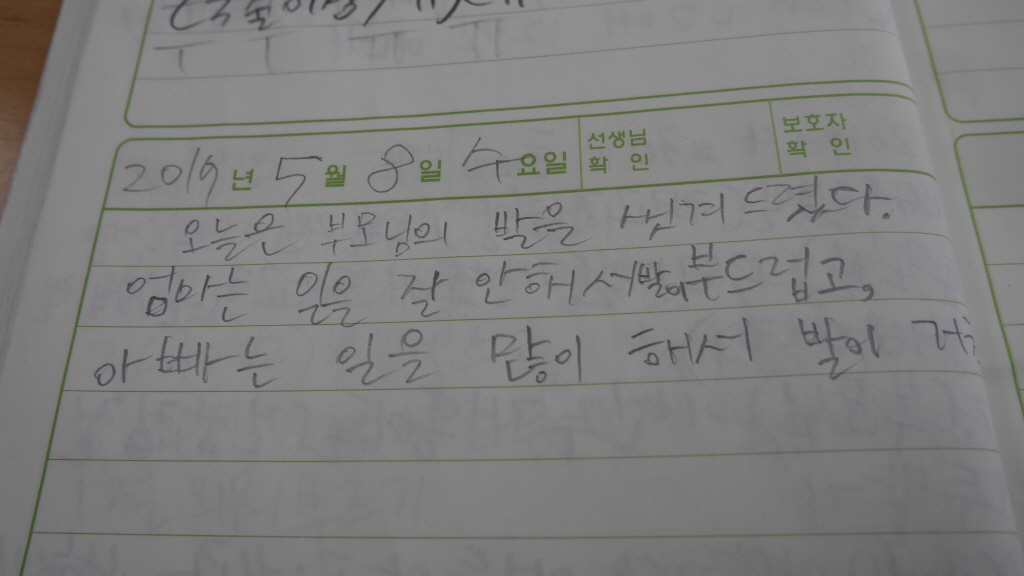 2019년 5월 8일 수요일 선생님 확인 보호자 확인
오늘은 부모님의 발을 씻겨 드렸다.
엄마는 일은 잘 안해서발이부드럽고,
아빠는 일을 많이 해서 발이